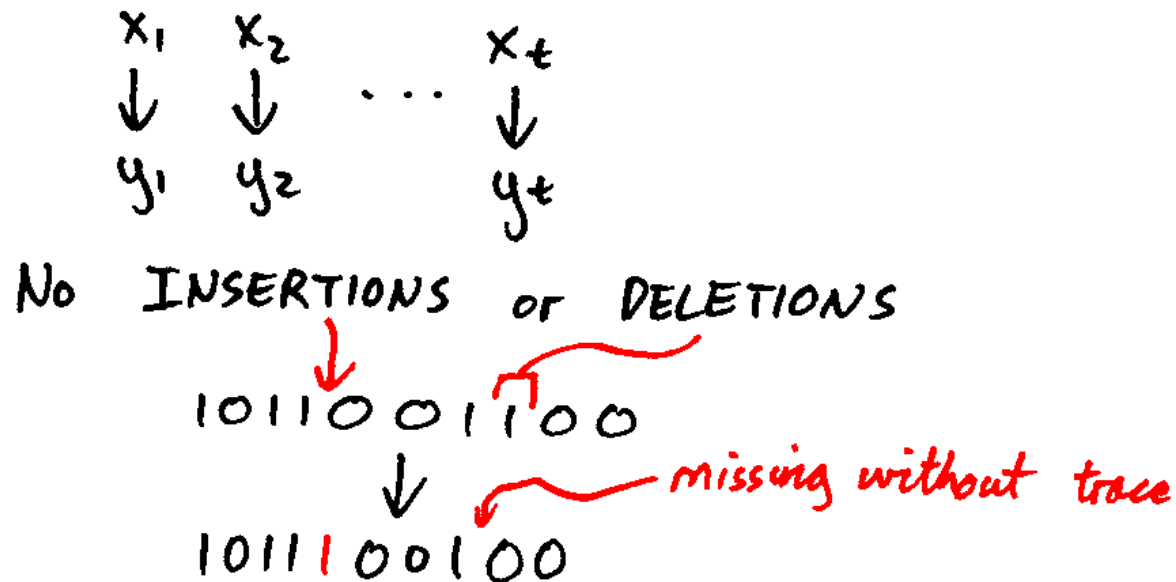 x₁ x₂ ... xₜ
y₁ y₂ yₜ
No INSERTIONS or DELETIONS
1011001100
missing without trace
1011100100